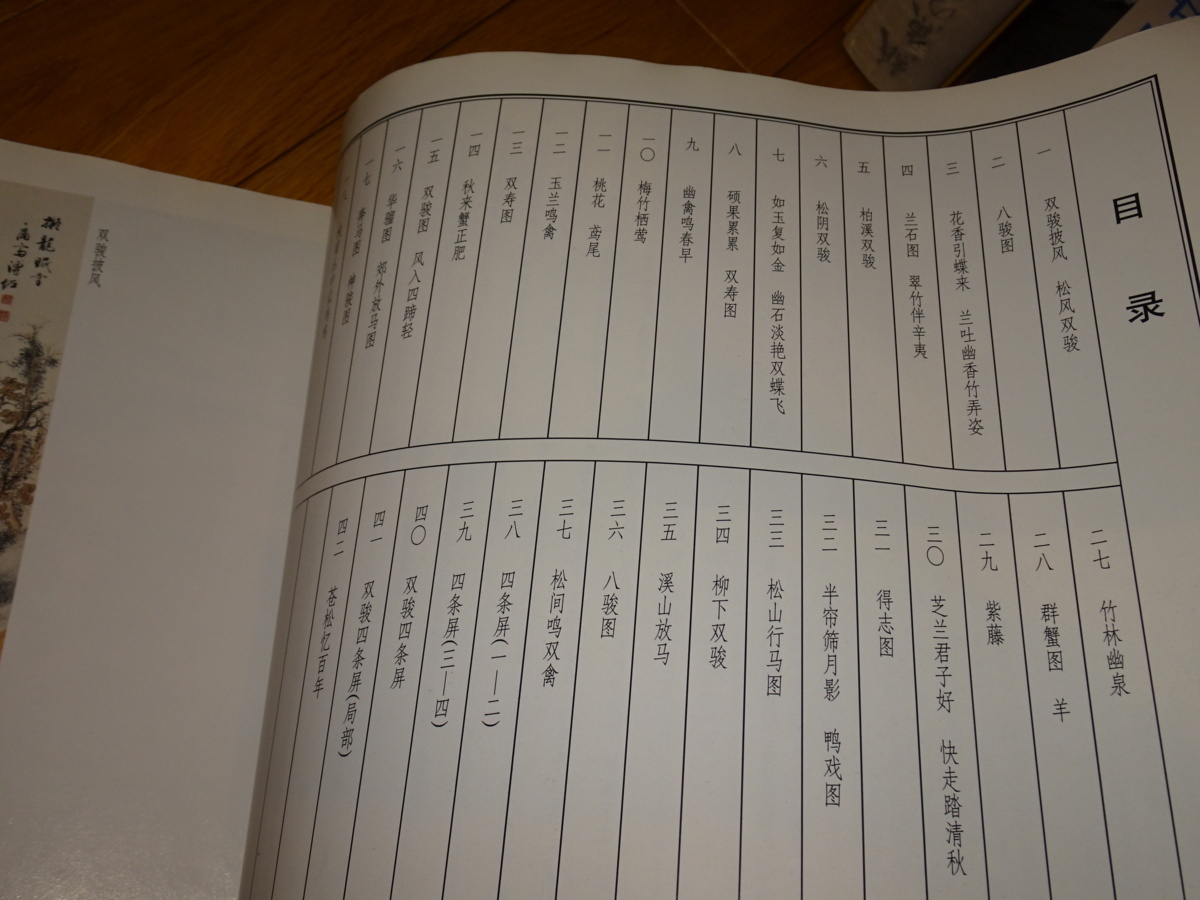 目录
一 双骏披风 松风双骏
二 八骏图
三 花香引蝶来 兰吐幽香竹弄姿
四 兰石图 翠竹伴辛夷
五 柏溪双骏
六 松阴双骏
七 如玉复如金 幽石淡艳双蝶飞
八 硕果累累 双寿图
九 幽禽鸣春早
一〇 梅竹栖莺
一一 桃花 鸢尾
一二 玉兰鸣禽
一三 双寿图
一四 秋来蟹正肥
一五 双骏图 风入四蹄轻
一六 华骝图 郊外放马图
一七
二七 竹林幽泉
二八 群蟹图 羊
二九 紫藤
三〇 芝兰君子好 快走踏清秋
三一 得志图
三二 半帘筛月影 鸭戏图
三三 松山行马图
三四 柳下双骏
三五 溪山放马
三六 八骏图
三七 松间鸣双禽
三八 四条屏(一—二)
三九 四条屏(三—四)
四〇 双骏四条屏
四一 双骏四条屏(局部)
四二 苍松忆百年
双骏披风